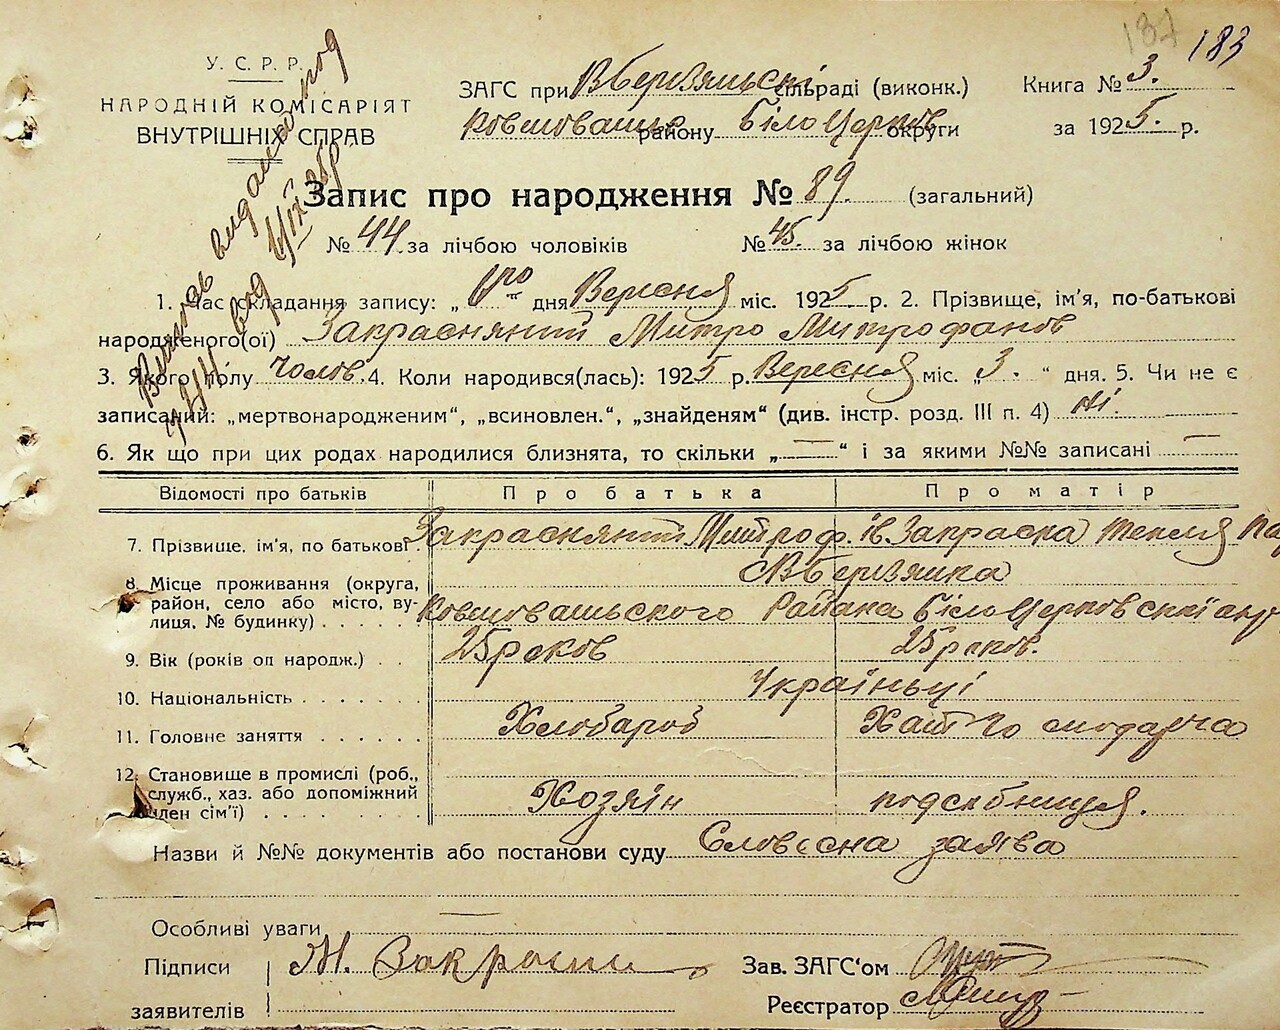 187 183
У. С. Р. Р.
НАРОДНІЙ КОМІСАРІЯТ
ВНУТРІШНІХ СПРАВ
ЗАГС при Вберезяньскі сільраді (виконк.) Книга № 3.
району Білоцерков округи за 1925. р.
Запис про народження № 89. (загальний)
№ 44 за лічбою чоловіків № 45. за лічбою жінок
1. Час складання запису: „ дня Вересня міс. 1925 р. 2. Прізвище, ім’я, по-батькові
народженого(ої) Закраснянтй Митро Митрофанов
3. Якого полу Чолов. 4. Коли народився(лась): 1925 р. Вересня міс. „ 3. “ дня. 5. Чи не є
записаний: „мертвонародженим“, „всиновлен.“, „знайденям“ (див. інстр. розд. III п. 4) ні.
6. Як що при цих родах народилися близнята, то скільки „ — “ і за якими №№ записані —
Відомості про батьків Про батька Про матір
7. Прізвище. ім’я, по батькові . Митроф. ів. Закраска Текля
8. Місце проживання (округа,
район, село або місто, ву-
лиця, № будинку) . . . . . Района
9. Вік (років оп народж.) . . 25 реков 25 реков.
10. Національність . . . . . . . Україньці
11. Головне заняття . . . . . . Хлобароб
12. Становище в промислі (роб.,
служб., хаз. або допоміжний
член сім’ї) . . . . . . Хозяін подсобниця.
Назви й №№ документів або постанови суду Словєсна заява
Особливі уваги —
Підписи
заявителів
М. Закрасня
Зав. ЗАГС‘ом
Реєстратор